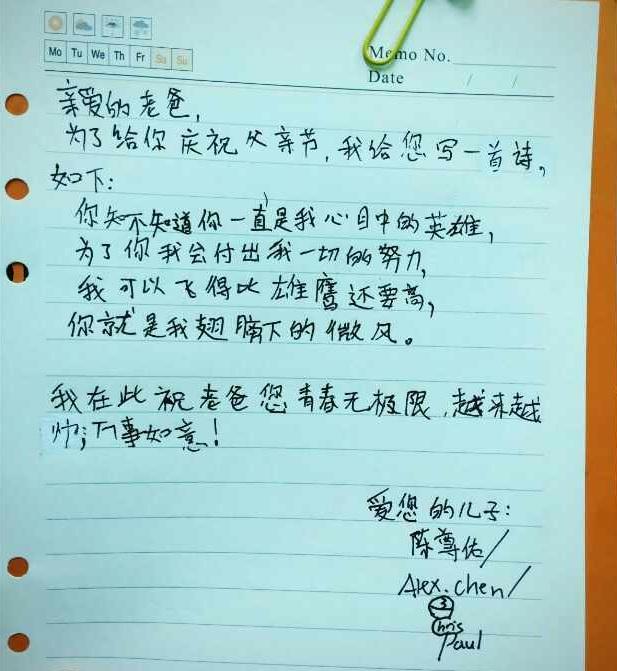 Mo Tu We Th Fr Sa Su
Memo No.
Date / /
亲爱的老爸,
为了给你庆祝父亲节,我给您写一首诗,
如下:
你知不知道你一直是我心目中的英雄,
为了你我会付出我一切的努力,
我可以飞得比雄鹰还要高,
你就是我翅膀下的微风。
我在此祝老爸您青春无极限,越来越
帅,万事如意!
爱您的儿子:
陈尊佑/
Alex.chen/
3
Chris
Paul